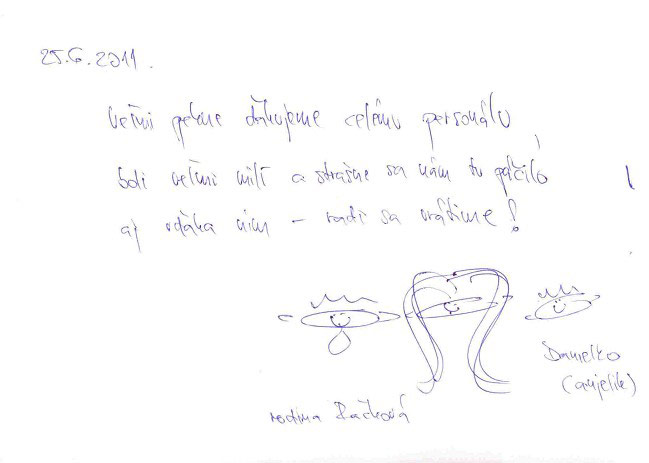 25.6.2011.
Veľmi pekne ďakujeme celému personálu,
boli veľmi milí a strašne sa nám tu páčilo
aj vďaka nim - radi sa vrátime!
Danielko
(anjelik)
rodina Račková